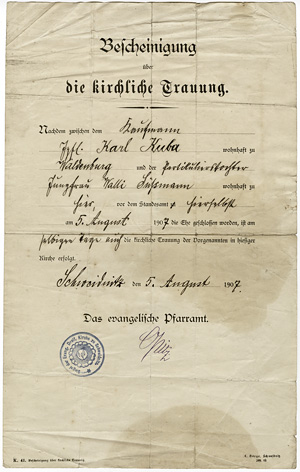 Bescheinigung
über
die kirchliche Trauung.
Nachdem zwischen dem Kaufmann
Karl Kuba wohnhaft zu
Waldenburg und der Partikuliertochter
Jungfrau Walli Süßmann wohnhaft zu
hier, vor dem Standesamt hierselbst
am 5. August 1907 die Ehe geschlossen worden, ist am
selbigen Tage auch die kirchliche Trauung der Vorgenannten in hiesiger
Kirche erfolgt.
Schweidnitz den 5. August 1907.
Das evangelische Pfarramt.